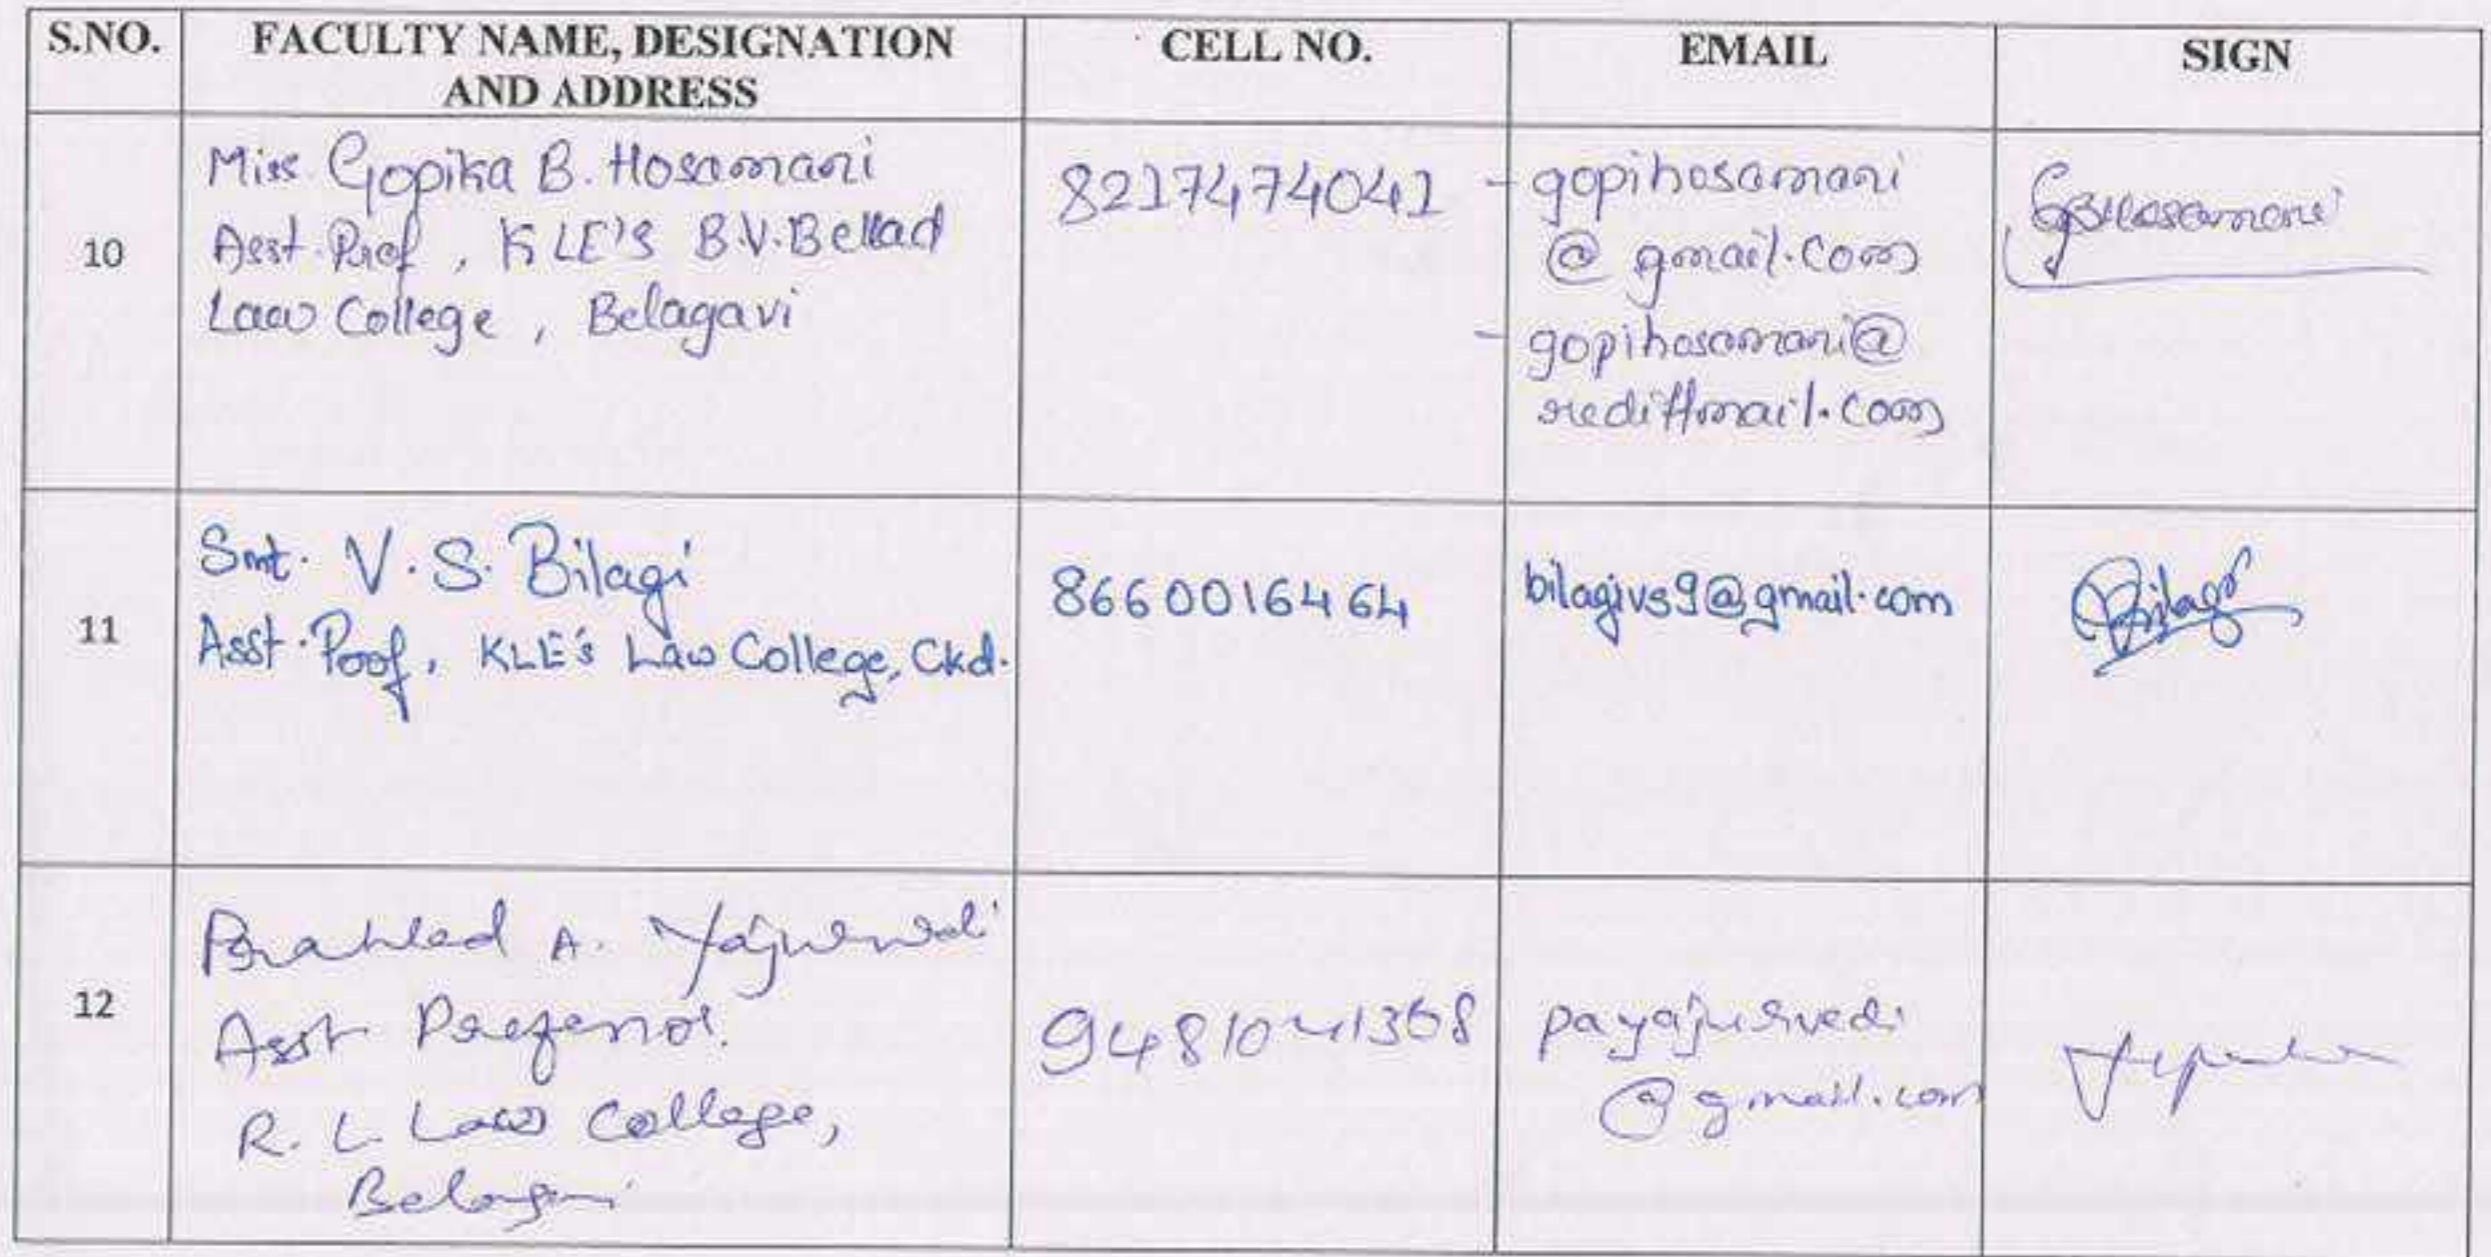 S.NO. FACULTY NAME, DESIGNATION AND ADDRESS CELL NO. EMAIL SIGN
10
Miss. Gopika B. Hosamani
Asst. Prof , KLE'S B.V.Bellad
Law College , Belagavi
8217474041
- gopihosamani
@ gmail.com
- gopihosamani@
rediffmail.com
GBHosamani
11
Smt. V. S. Bilagi
Asst. Prof, KLE's Law College, Ckd.
8660016464
bilagivs9@gmail.com
Bilagi
12
Prahlad A. Yajurvedi
Asst Professor.
R. L. Law College,
Belagavi
payajurvedi
@gmail.com